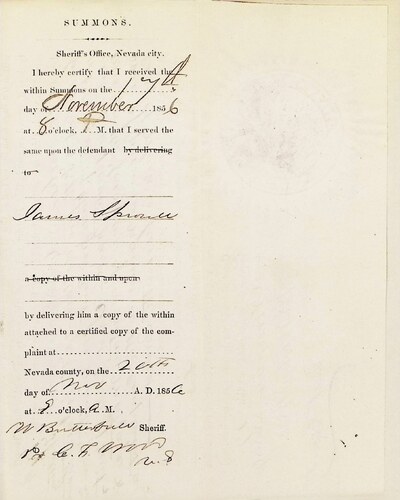 SUMMONS.
Sheriff's Office, Nevada city.
I hereby certify that I received the
within Summons on the 17th
day of November 1856
at 8 o'clock, P. M. that I served the
same upon the defendant by delivering
to
James Sproul
a copy of the within and upon
by delivering him a copy of the within
attached to a certified copy of the com-
plaint at
Nevada county, on the 20th
day of Nov A. D. 1856
at 8 o'clock, A. M.
W Butterfield Sheriff.
C. F. Wood